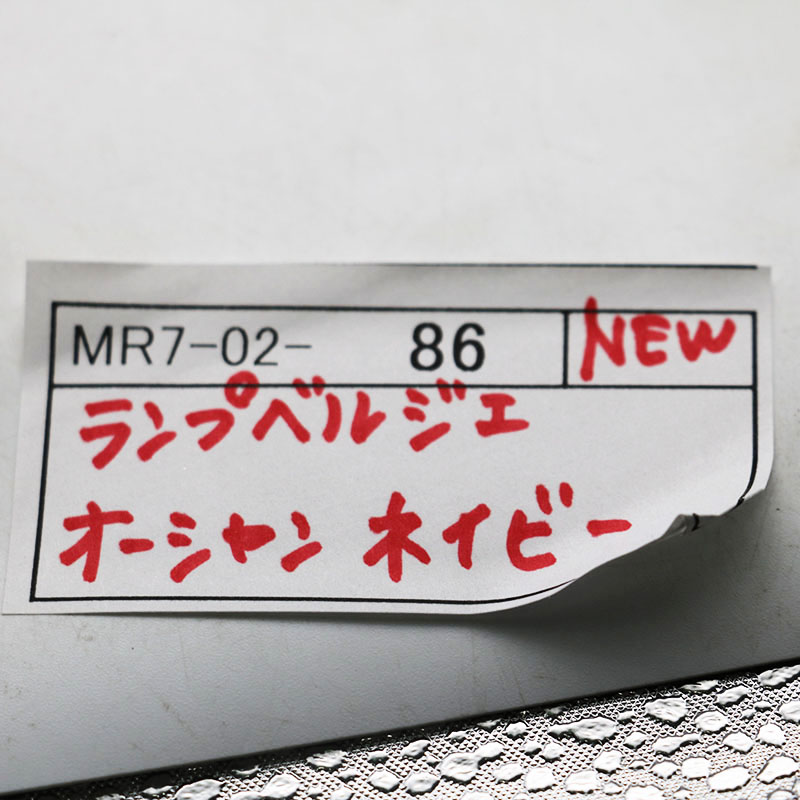 MR7-02- 86 NEW
ランプベルジェ
オーシャン ネイビー